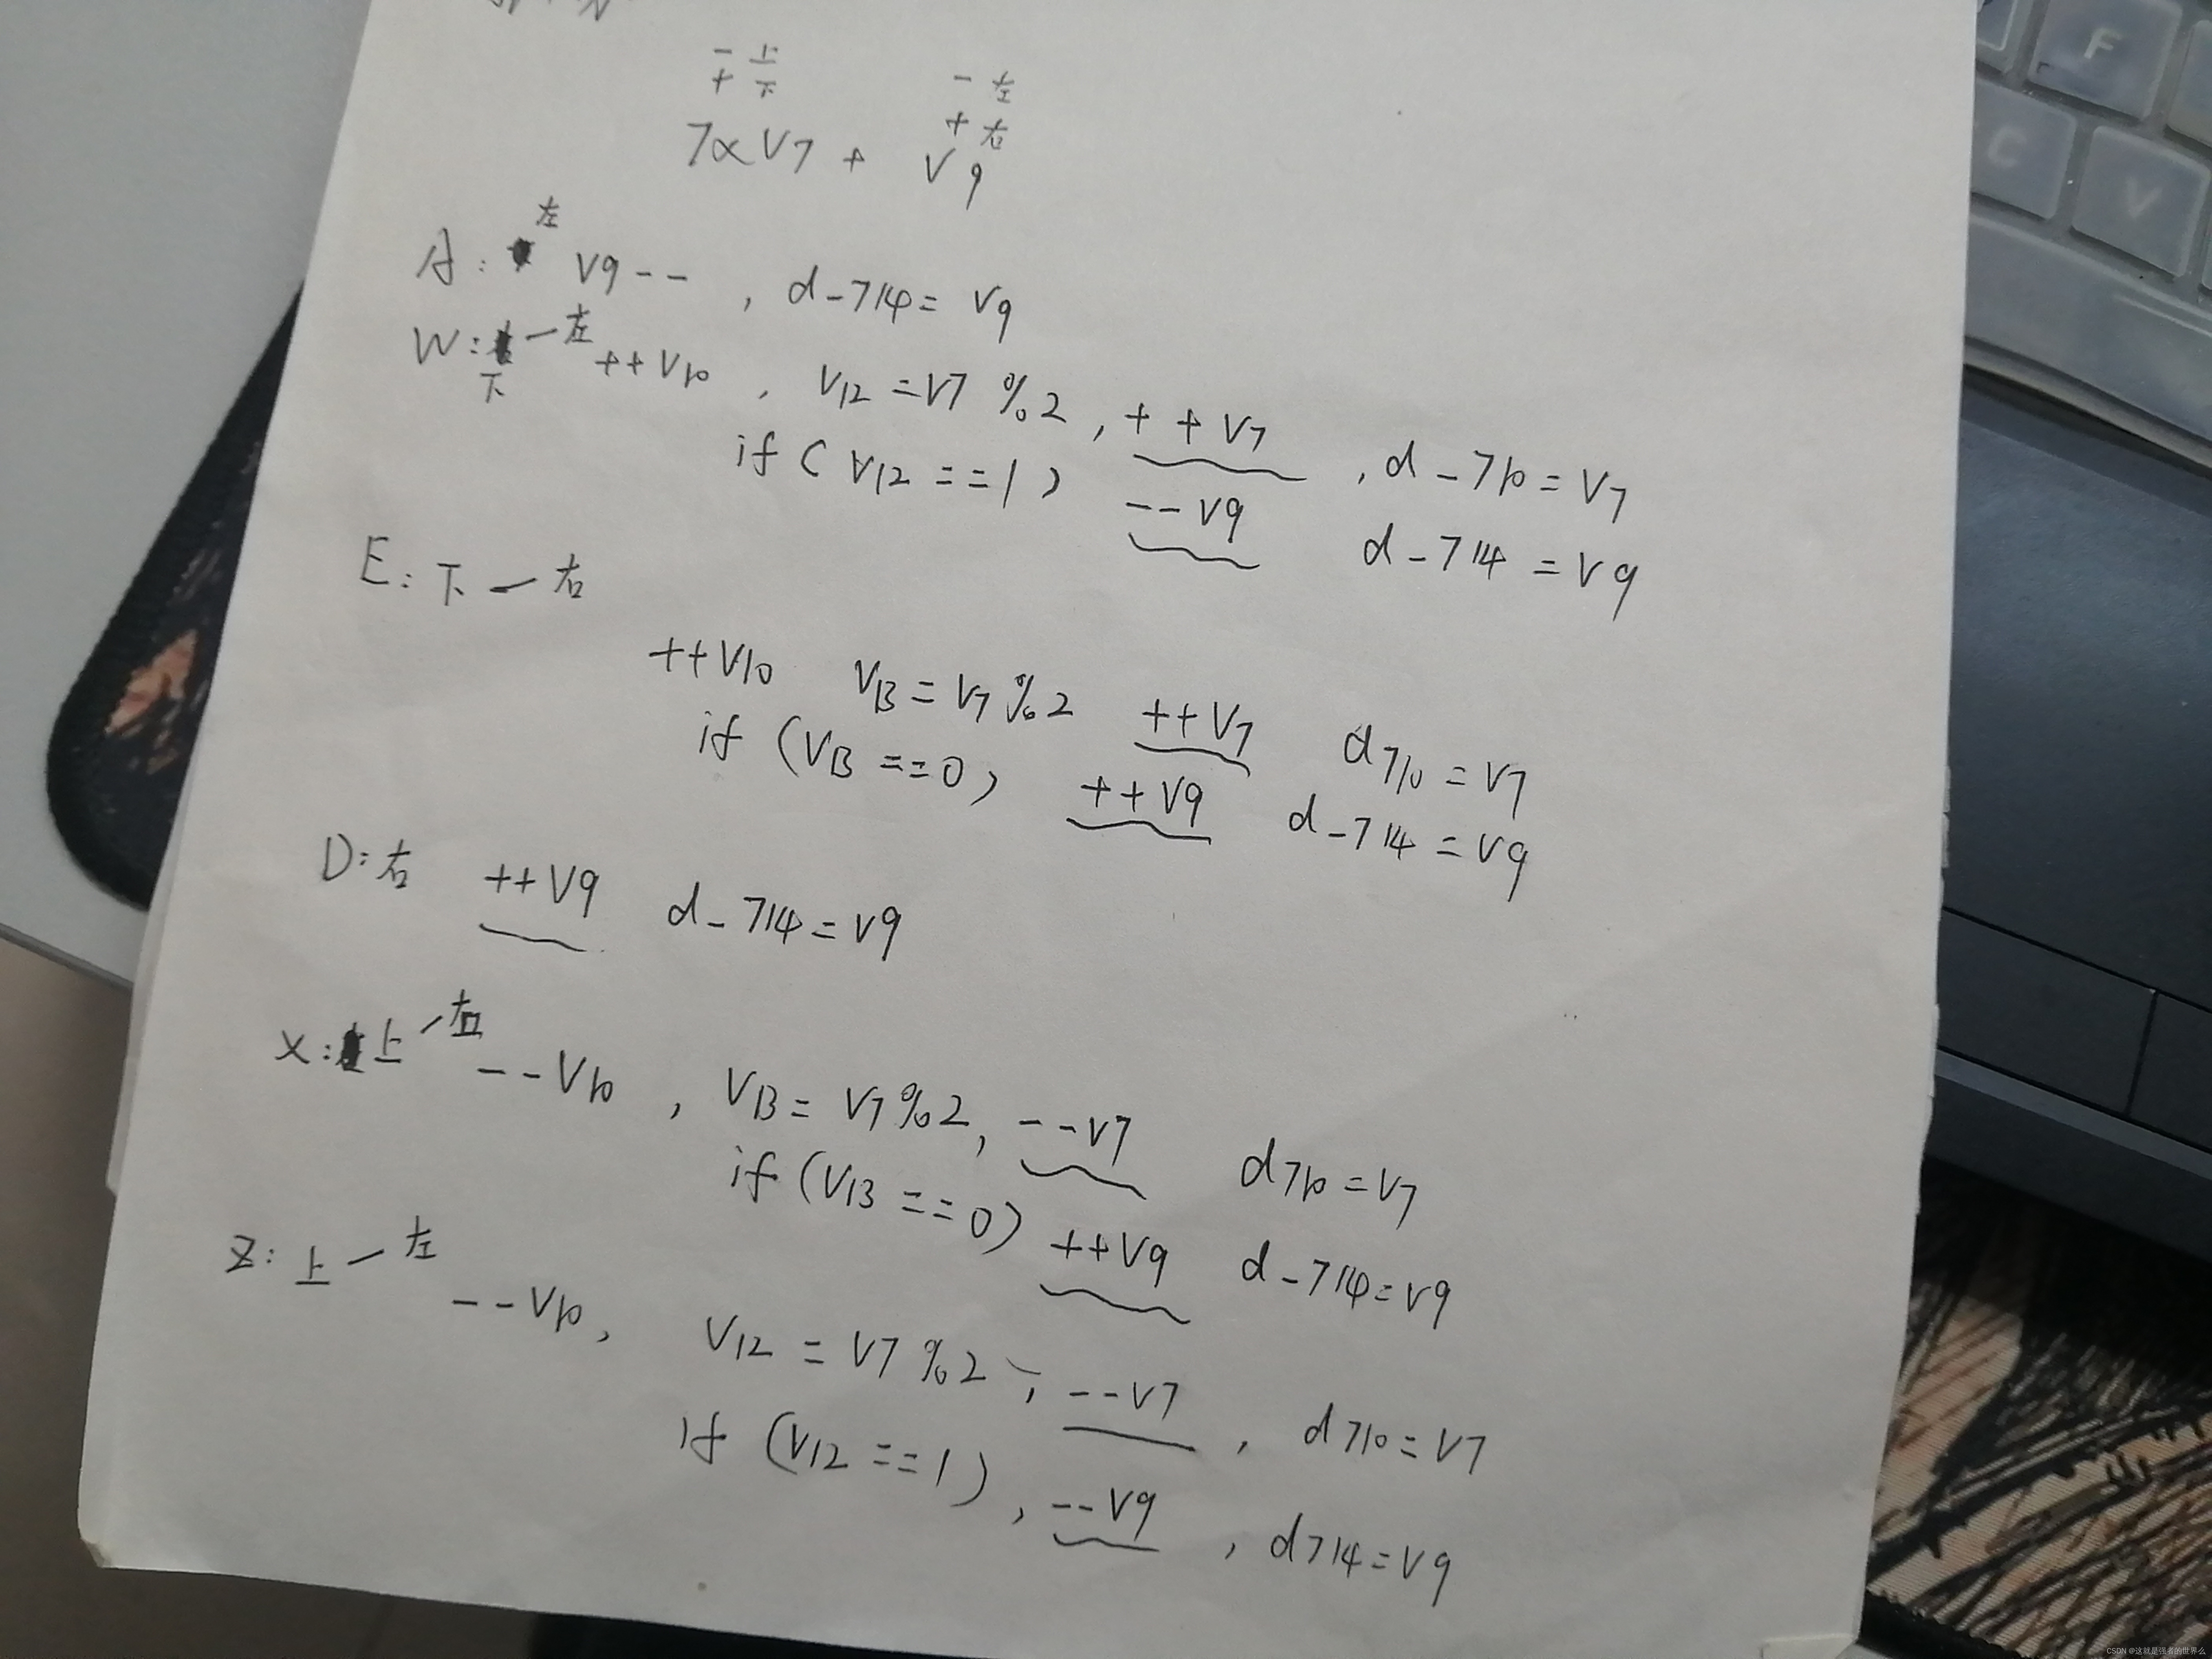 - 上
+ 下
- 左
+ 右
7αV7 + V9
A: 左 V9-- , d-714= V9
W: 下一左 ++V10 , V12 =V7 %2 , ++V7 , d-710=V7
if ( V12 ==1 ) --V9 d-714 =V9
E: 下一右
++V10 V13=V7%2 ++V7 d710=V7
if (V13 ==0) ++V9 d-714 =V9
D:右 ++V9 d-714=V9
X: 上一右 --V10 , V13= V7%2, --V7 d710=V7
if (V13 ==0) ++V9 d-714=V9
Z: 上一左 --V10, V12 = V7%2 , --V7 , d710=V7
if (V12 ==1) , --V9 , d714=V9
F
C
V
CSDN @这就是强者的世界么